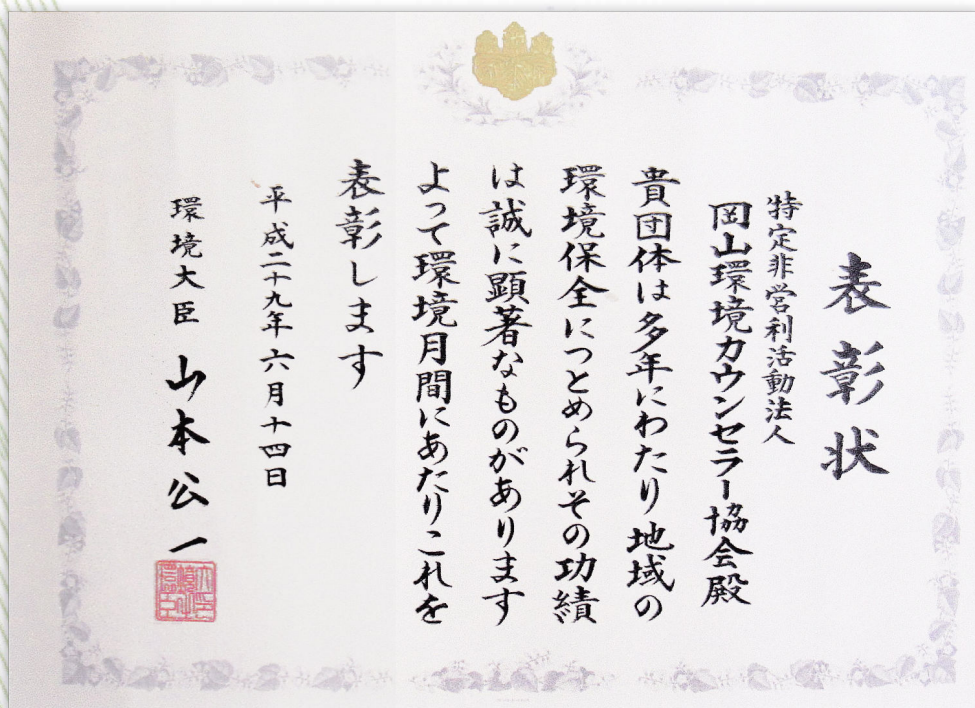 表彰状
特定非営利活動法人
岡山環境カウンセラー協会殿
貴団体は多年にわたり地域の
環境保全につとめられその功績
は誠に顕著なものがあります
よって環境月間にあたりこれを
表彰します
平成二十九年六月十四日
環境大臣 山本公一